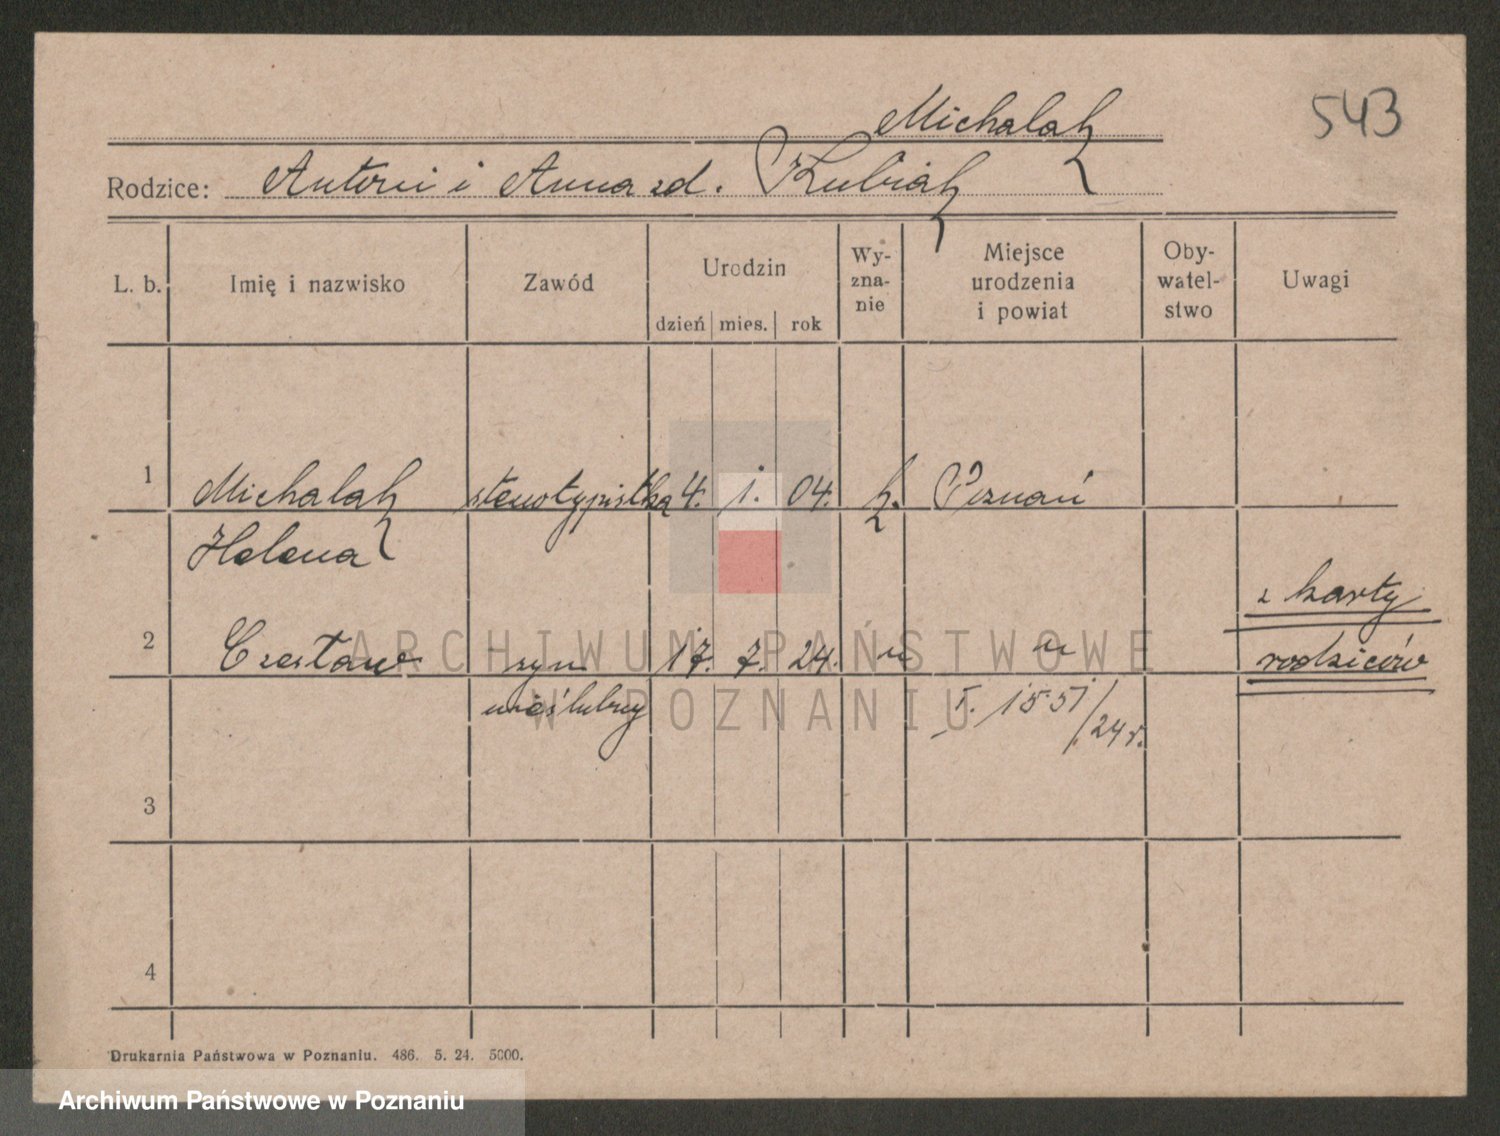 543
Michalak
Rodzice: Antoni i Anna zd. Kubiak
L. b. Imię i nazwisko Zawód Urodzin dzień mies. rok Wy-zna-nie Miejsce urodzenia i powiat Oby-watel-stwo Uwagi
1 Michalak stenotypistka 4. 1. 04. k. Poznań
Helena
z karty
2 Czesław syn 17. 7. 24. " " rodziców
nieślubny I. 1551/24 r.
3
4
Drukarnia Państwowa w Poznaniu. 486. 5. 24. 5000.
ARCHIWUM PAŃSTWOWE
W POZNANIU
Archiwum Państwowe w Poznaniu